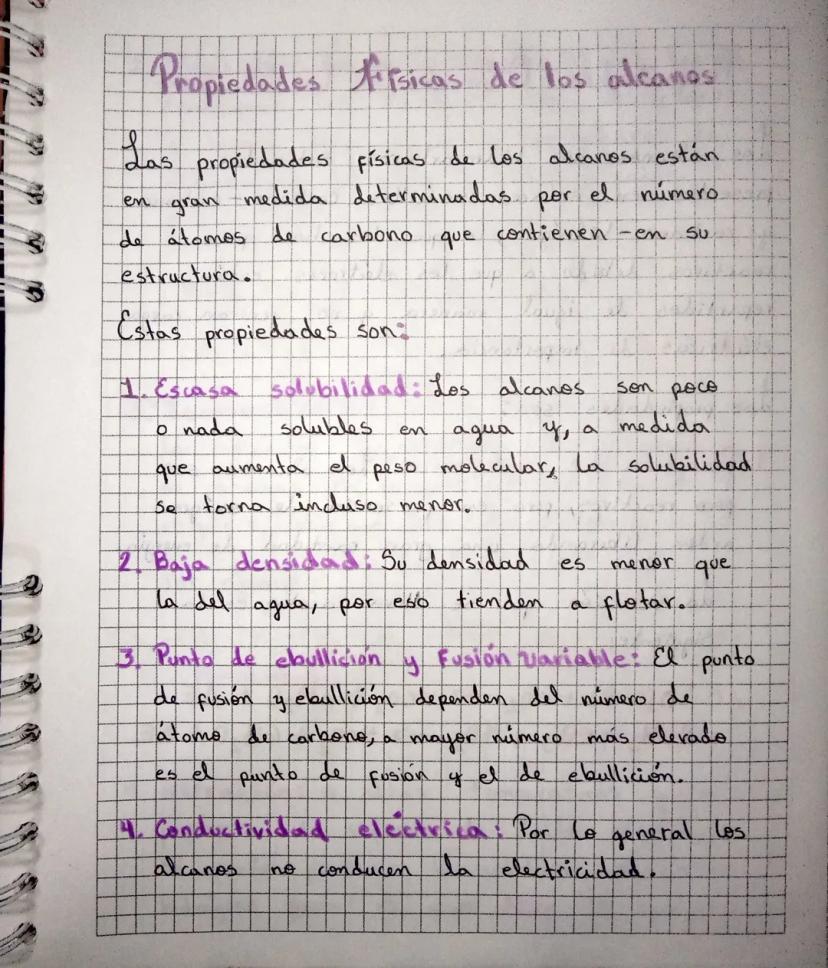 Propiedades físicas de los alcanos
Las propiedades físicas de los alcanos están
en gran medida determinadas por el número
de átomos de carbono que contienen en su
estructura.
Estas propiedades son:
1. Escasa solubilidad: Los alcanos son poco
o nada solubles en agua y, a medida
que aumenta el peso molecular, la solubilidad
se torna incluso menor.
2. Baja densidad: Su densidad es menor que
la del agua, por eso tienden a flotar.
3. Punto de ebullición y Fusión variable: El punto
de fusión y ebullición dependen del número de
átomo de carbono, a mayor número más elevado
es el punto de fusión y el de ebullición.
4. Conductividad eléctrica: Por lo general los
alcanos no conducen la electricidad.